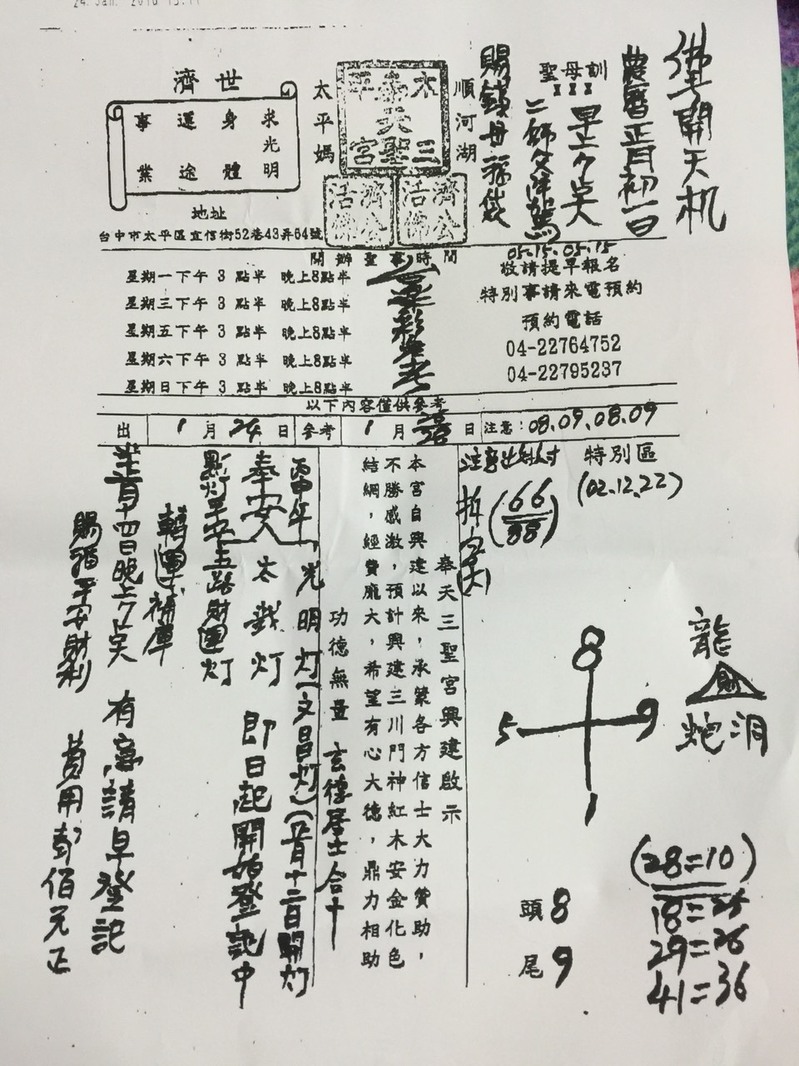 佛聖開天机
農曆正月初一日
聖母訓
早上
二師父降駕
賜錢母一福袋
順河湖
太平媽
太平奉天三聖宮
濟公活佛
濟公活佛
濟世
求光明
身體
運途
事業
地址
台中市太平區宜信街52巷43弄64號
開辦聖事時間
星期一下午3點半 晚上8點半
星期三下午3點半 晚上8點半
星期五下午3點半 晚上8點半
星期六下午3點半 晚上8點半
星期日下午3點半 晚上8點半
05.15.05.15
敬請提早報名
特別事請來電預約
預約電話
04-22764752
04-22795237
以下內容僅供參考
出 1月24日 參考 1月 日 注意:08.09.08.09
特別區
(02.12.22)
(66
88)
龍
財
蛇洞
8
5 9
1
頭8
尾9
(28=10)
18=25
29=26
41=36
奉天三聖宮興建啟示
本宮自興建以來,承蒙各方信士大力贊助,
不勝感激,預計興建三川門神紅木安金化色
結網,經費龐大,希望有心大德,鼎力相助
功德無量 玄德居士合十
丙申年,光明灯(文昌灯)(正月十二日開灯
奉安 太歲灯 即日起開始登記中
點灯平安五路財團灯
轉運補庫
正月十四日晚上 有意請早登記
賜福平安財利 費用 佰元正